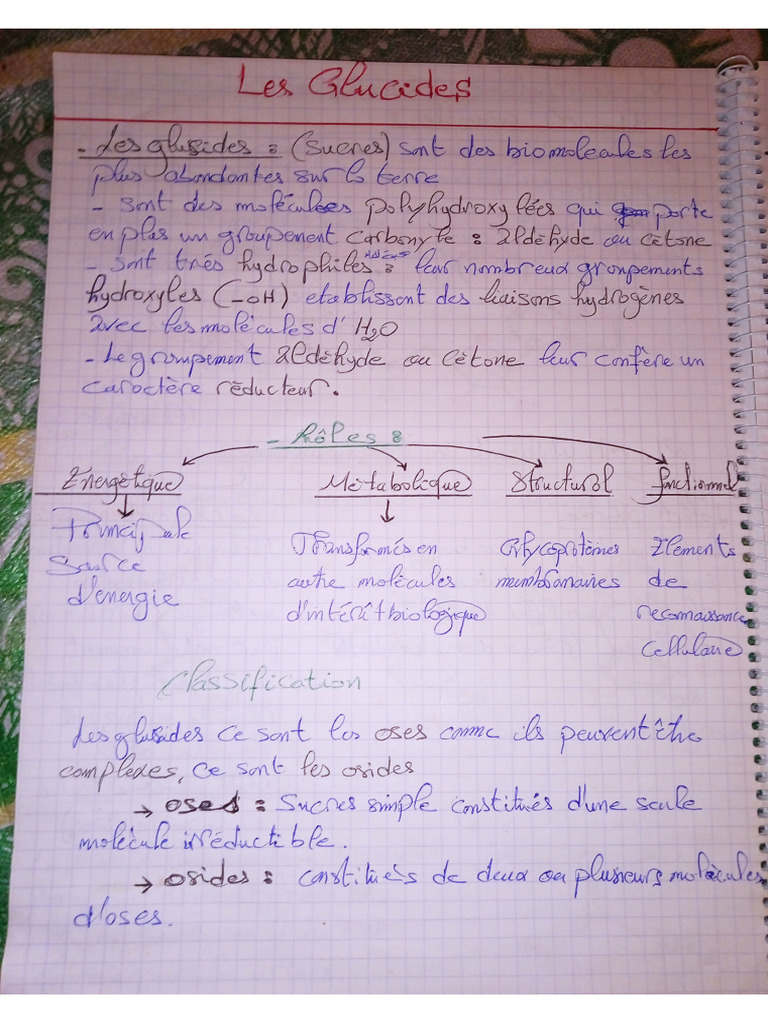 Les Glucides
- Les glusides : (sucres) sont des biomolecules les
plus abondantes sur la terre
- sont des molécules polyhydroxylées qui porte
en plus un groupement carbonyle : aldéhyde ou cètone
- sont très hydrophiles : leur nombreux groupements
hydroxyles (-OH) etablissent des liaisons hydrogènes
avec les molécules d'H2O
- Le groupement aldéhyde ou cètone leur confère un
caractère réducteur.
- Rôles :
Energétique Métabolique Structural fonctionnel
Principale Transformés en Glycoprotéines Elements
source autre molécules membranaires de
d'energie d'intérêt biologique reconnaissance
cellulaire
Classification
Les glusides ce sont les oses comme ils peuvent être
complexes, ce sont les osides
→ oses : sucres simple constitués d'une seule
molécule irréductible.
→ osides : constitués de deux ou plusieurs molécules
d'oses.